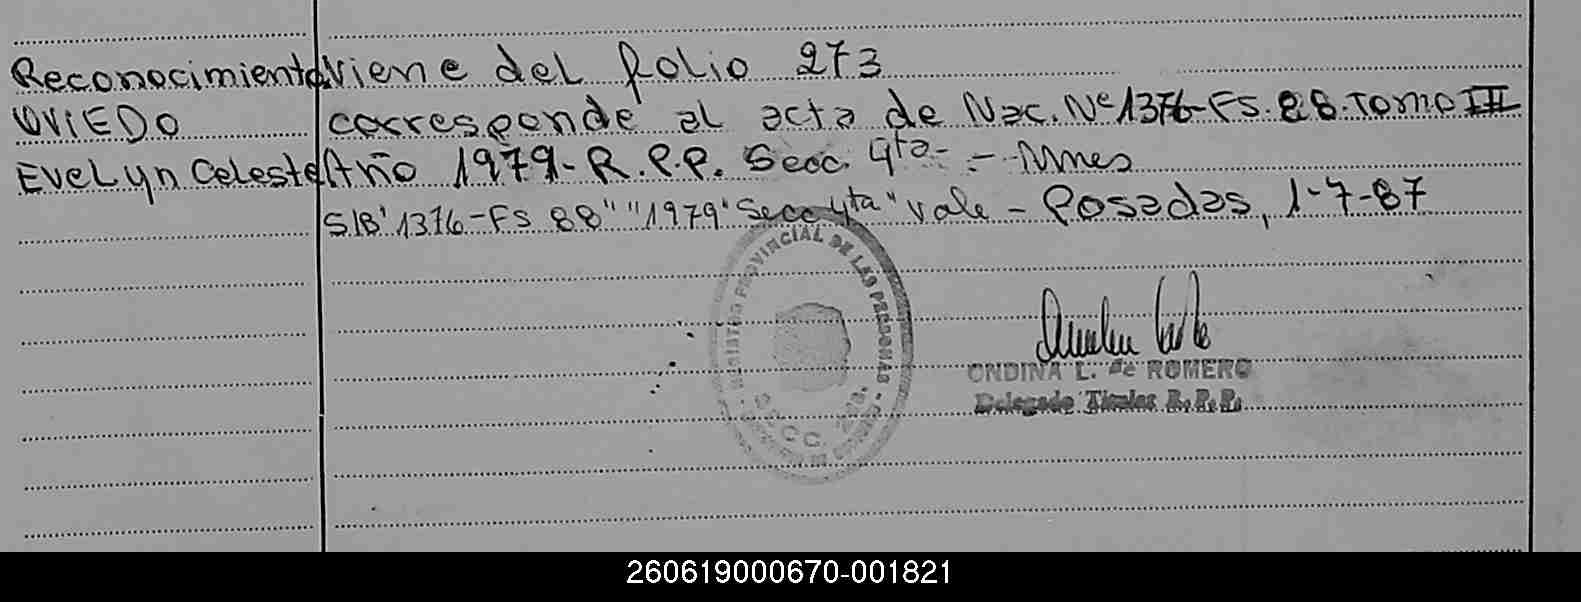 Reconocimiento Viene del folio 273
OViEDO corresponde al acta de Nac. Nº 1376-Fs. 88. Tomo III
Evelyn Celeste Año 1979-R.P.P. Secc. 4ta- =- Mnes
S/B "1376-Fs 88" "1979" Secc 4ta" Vale - Posadas, 1-7-87
REGISTRO PROVINCIAL DE LAS PERSONAS
SECC.
ONDINA L. de ROMERO
Delegado Titular R.P.P.
260619000670-001821